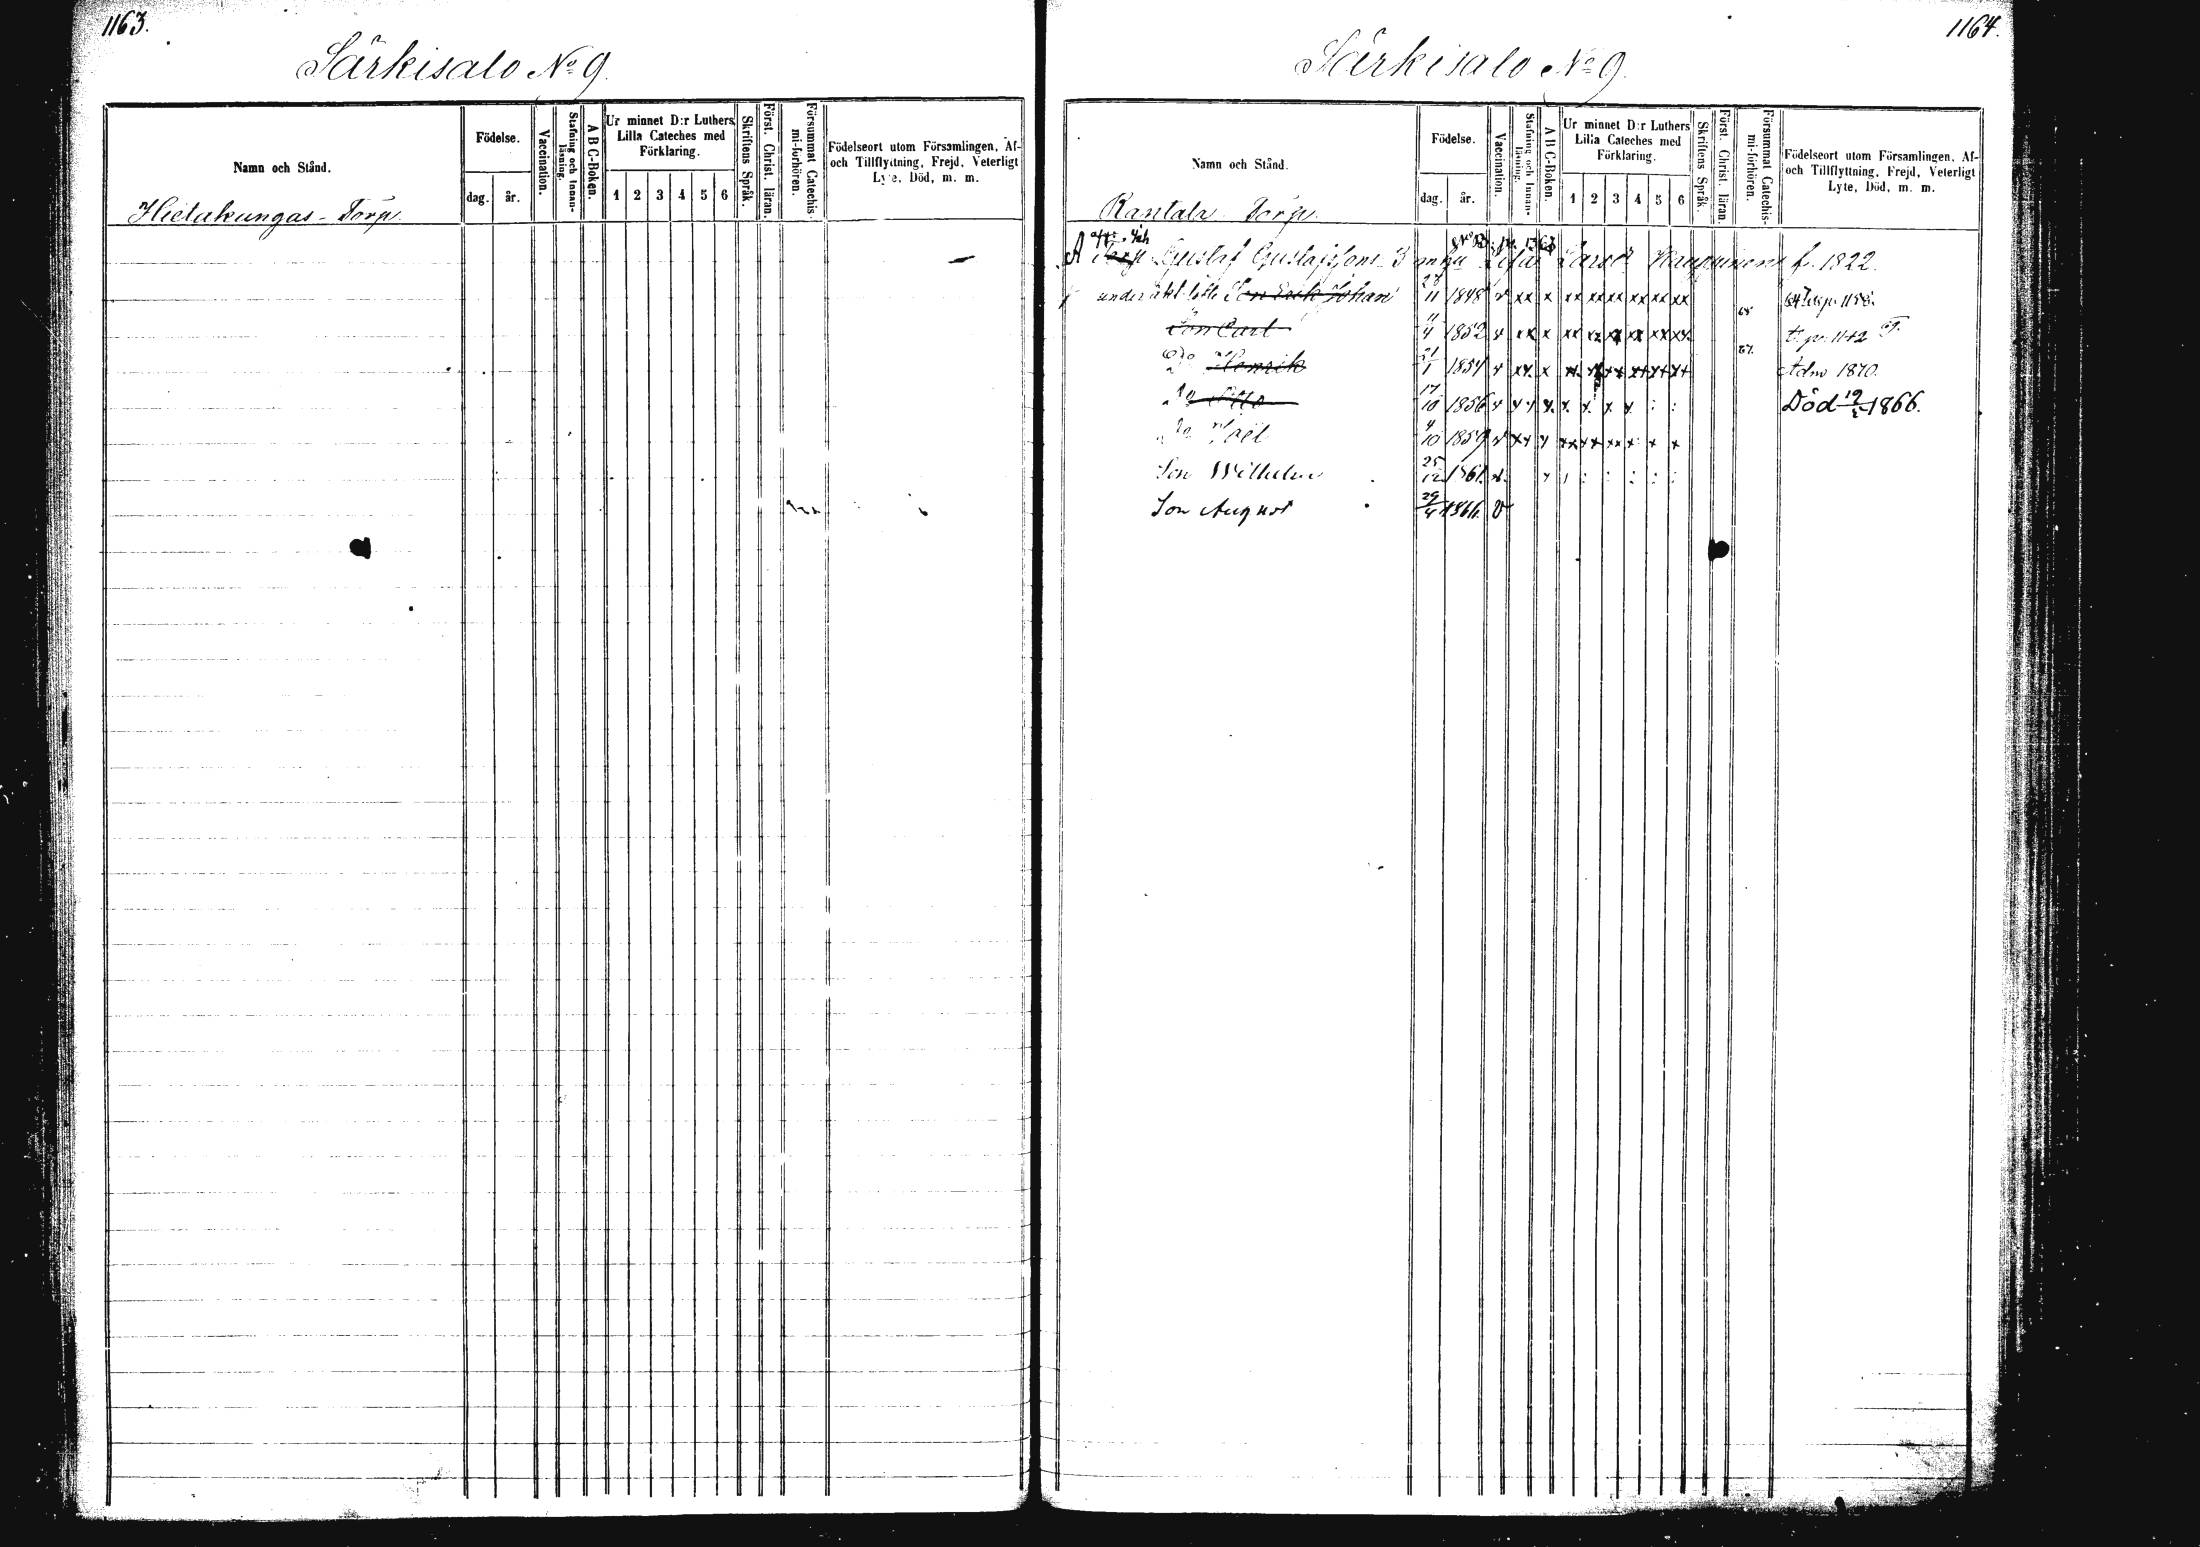 1163.
Särkisalo No 9.
Namn och Stånd.
Födelse.
dag.
år.
Vaccination.
Stafning och Innan-läsning.
A B C-Boken.
Ur minnet D:r Luthers
Lilla Cateches med
Förklaring.
1 2 3 4 5 6
Skriftens Språk.
Först. Christ. läran.
Försummat Catechis-mi-förhören.
Födelseort utom Församlingen, Af-
och Tillflyttning, Frejd, Veterligt
Lyte, Död, m. m.
Hietakungas - Torp.
1164.
Särkisalo No 9.
Namn och Stånd.
Födelse.
dag.
år.
Vaccination.
Stafning och Innan-läsning.
A B C-Boken.
Ur minnet D:r Luthers
Lilla Cateches med
Förklaring.
1 2 3 4 5 6
Skriftens Språk.
Först. Christ. läran.
Försummat Catechis-mi-förhören.
Födelseort utom Församlingen, Af-
och Tillflyttning, Frejd, Veterligt
Lyte, Död, m. m.
Rantala Torp.
A Torp Gustaf Gustafssons f. 1822.
Son Erik Johan 11 1848 v xx x xx xx xx xx xx xx 68
Son Carl 11/4 1852 v xx x xx xx xx xx xx xx 67.
Do Henrik 21/1 1854 v xx x Adm 1870.
Do Otto 17/10 1856 Död 19/5 1866.
Do Joël 4/10 1859
Son Wilhelm 25/12 1861.
Son August 29/4 1866. v